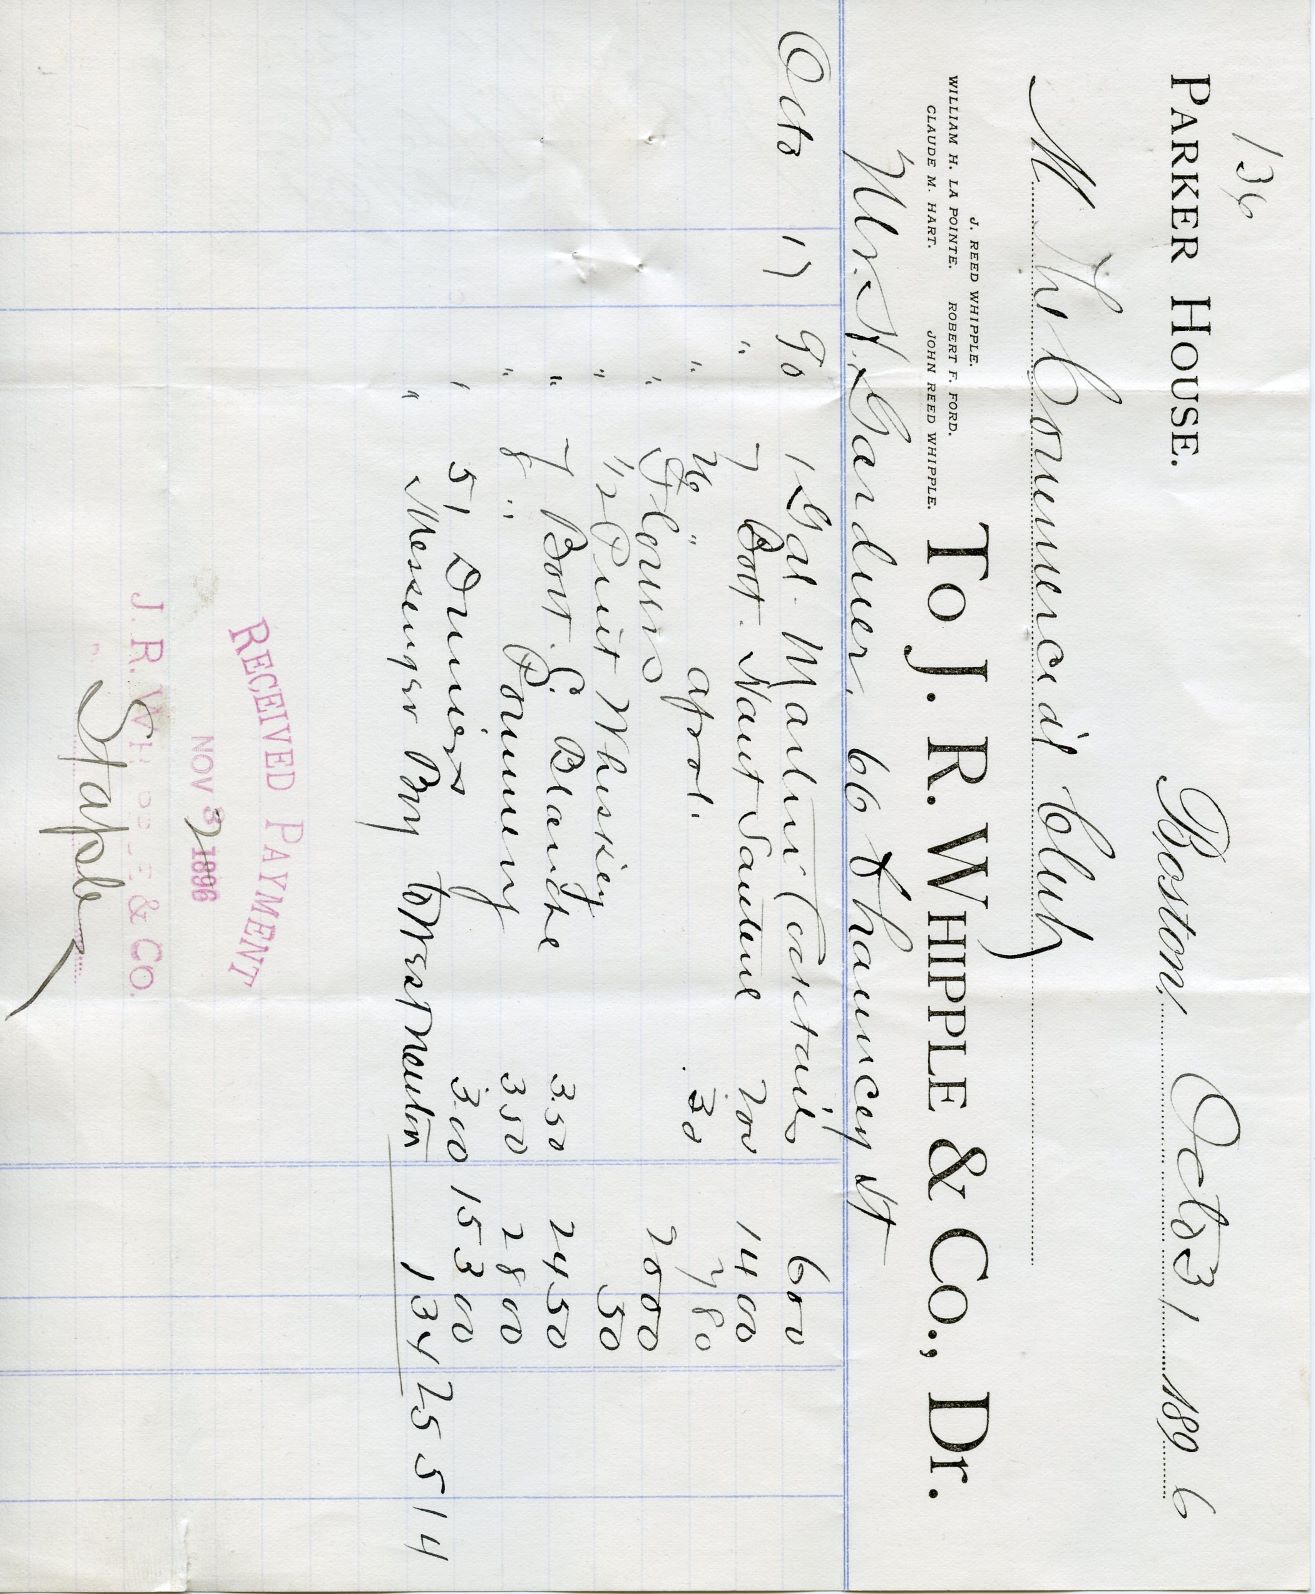 136
PARKER HOUSE.
Boston, Octo 31 1896
M The Commercial Club
J. REED WHIPPLE.
WILLIAM H. LA POINTE. ROBERT F. FORD.
CLAUDE M. HART. JOHN REED WHIPPLE.
To J. R. WHIPPLE & Co., Dr.
Mr. H. Gardner. 66 Chauncey St
Octo 17 To 1 Gal. Martini Cocktails 6 00
" 7 Bott. Haut Sauterne 2 00 14 00
" 26 " Apol. .30 7 80
" Flowers 20 00
" 1/2 Pint Whiskey 50
" 7 Bott. C. Blanche 3.50 24 50
" 8 " Pommery 3 50 28 00
" 51 Dinners 3.00 153 00
" Messenger Boy to West Newton 1 34 255 14
RECEIVED PAYMENT
NOV 2 1896
J. R. WHIPPLE & CO.
Staples